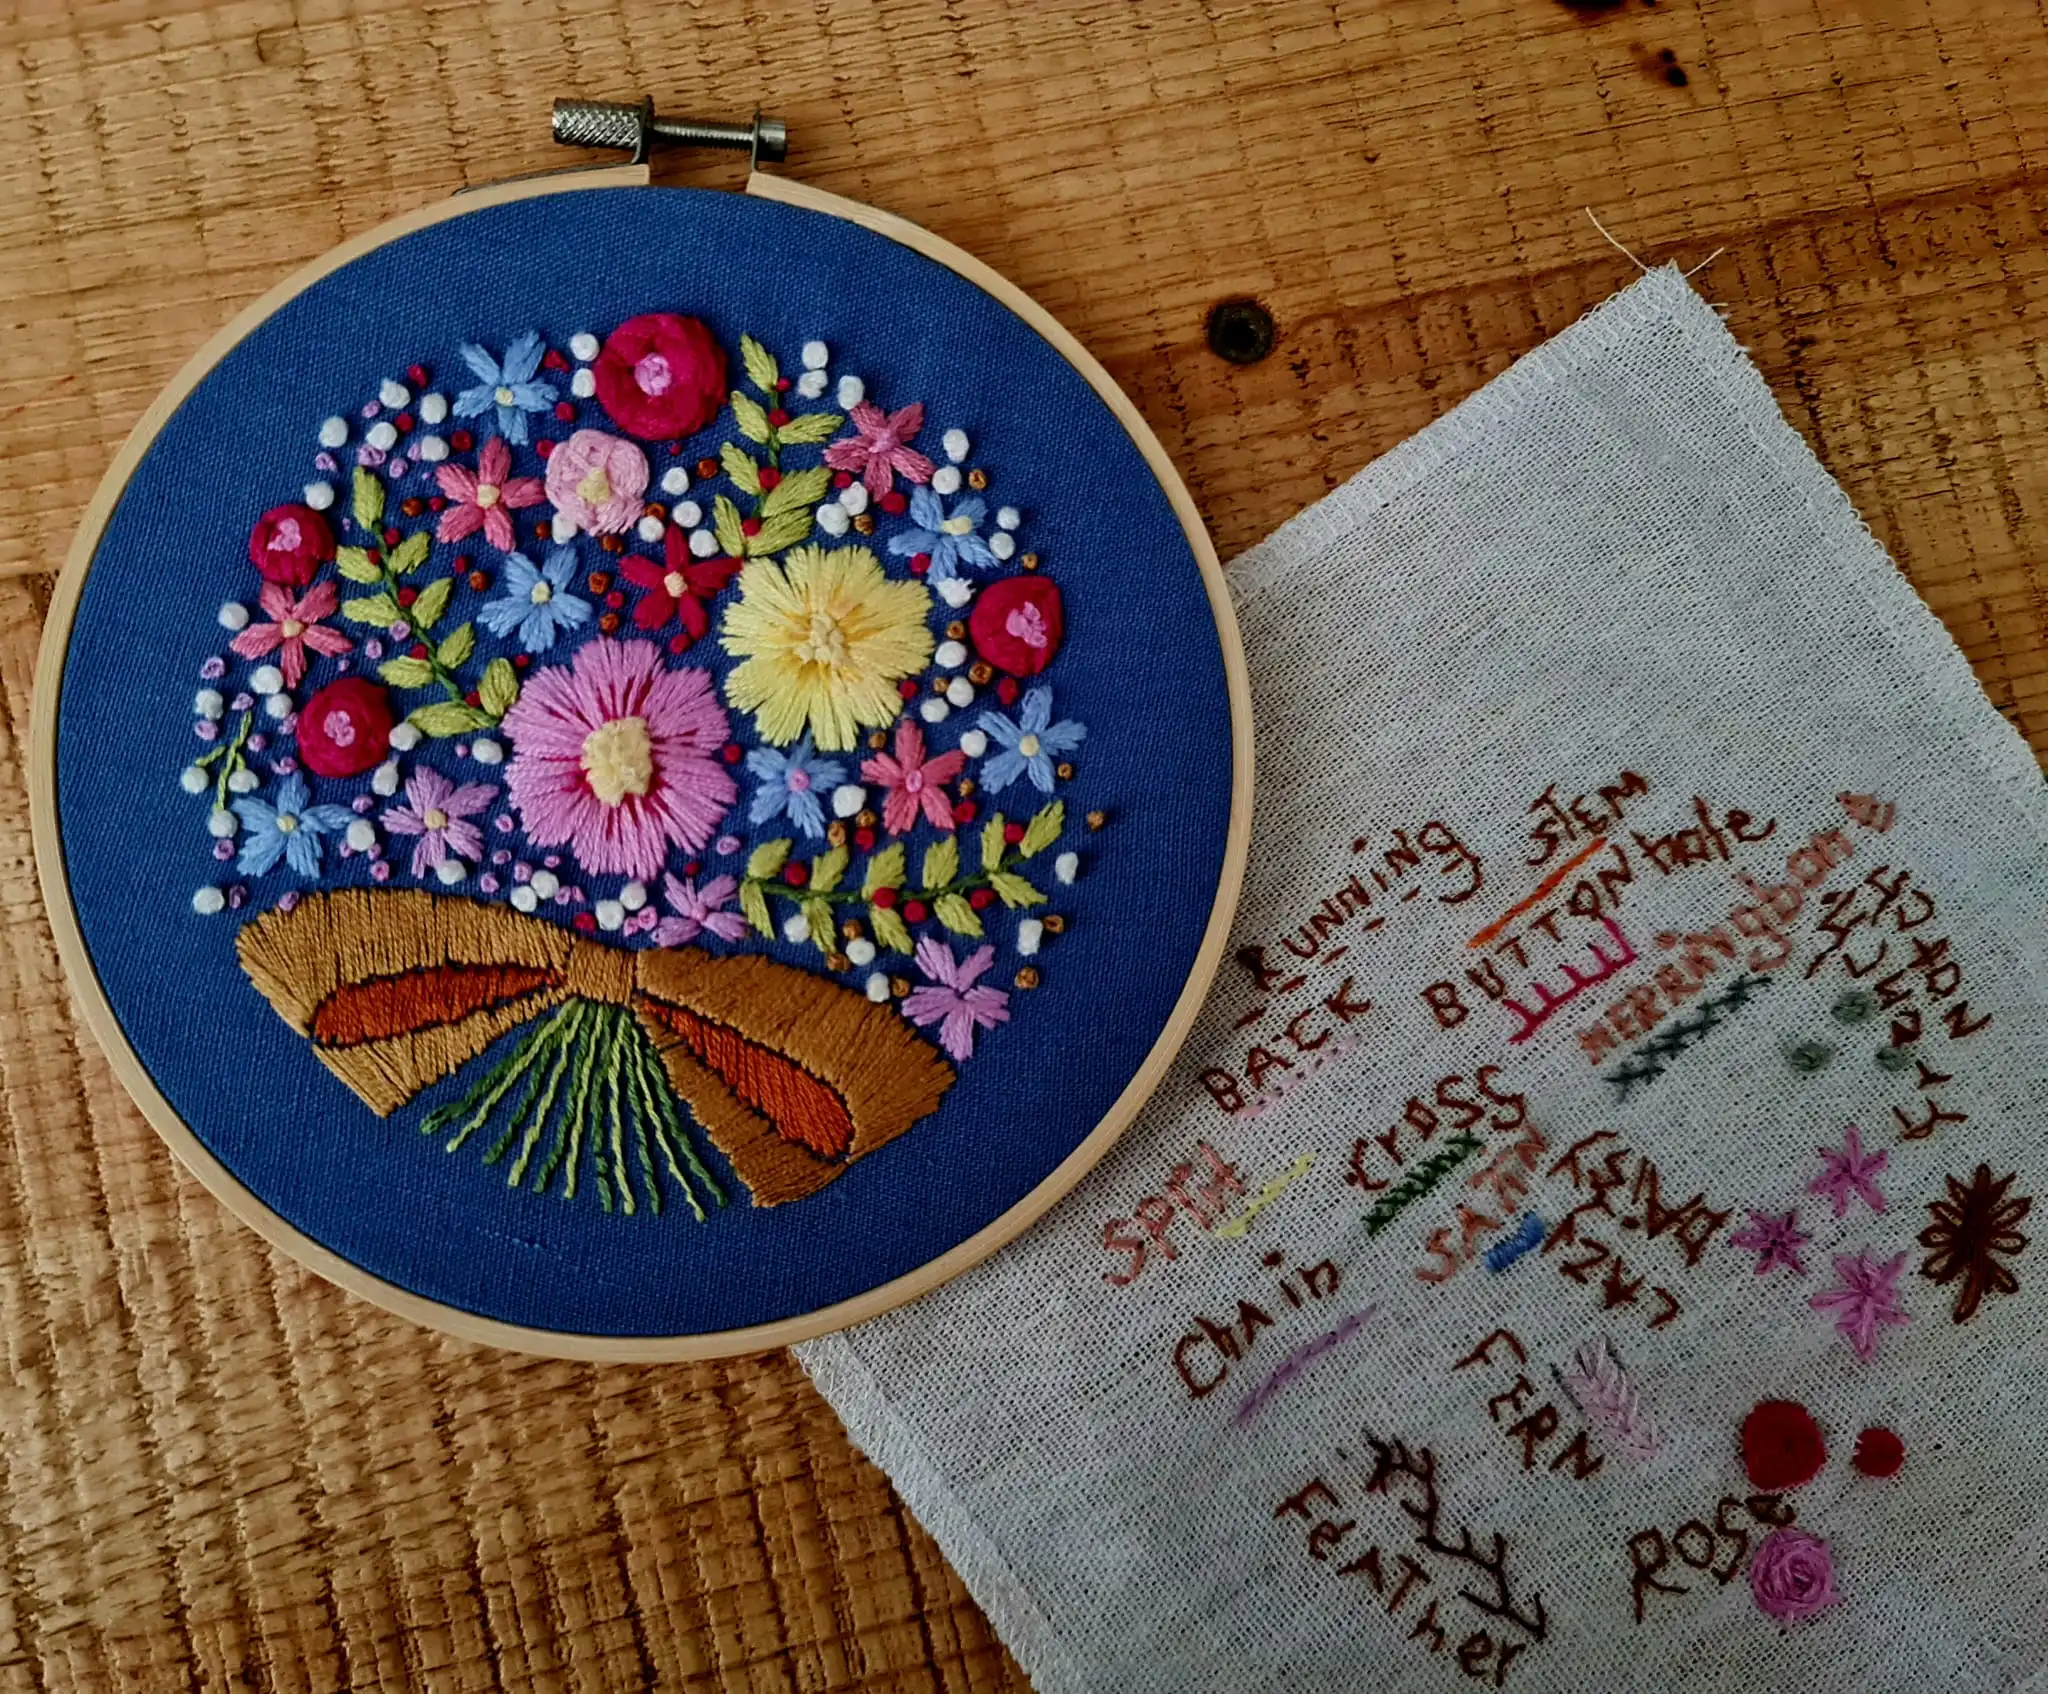 RUNNiNg
STEM
BACK
BUTTONhole
HERRiNgboNE
SPlit
CrOSS
SATiN
LAZY
DAiSY
ChAin
FERN
FeATher
ROSe